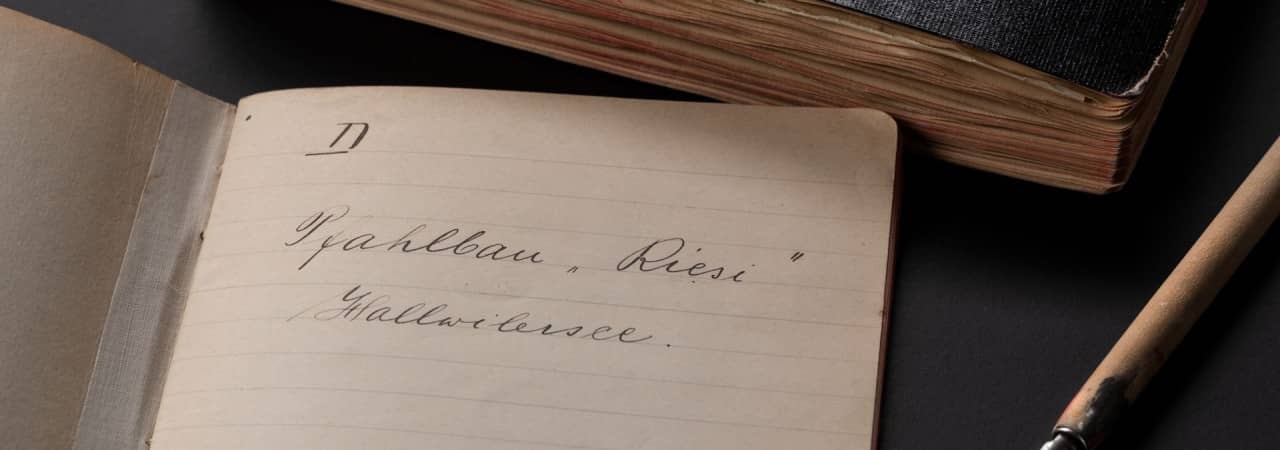 II
Pfahlbau „ Riesi "
Hallwilersee.